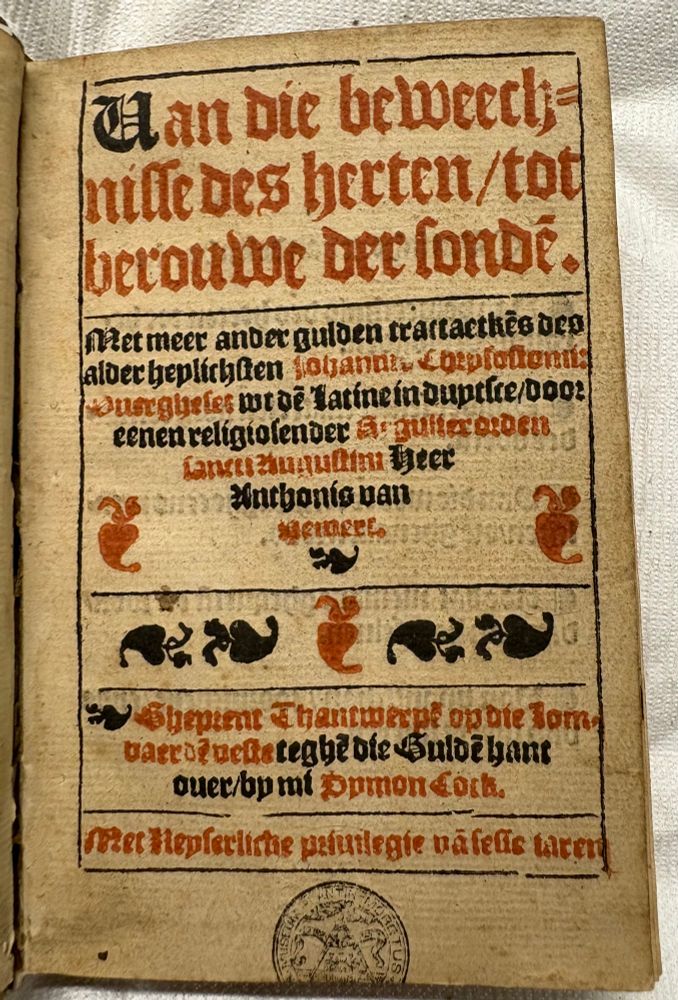 Van die beweech⸗
nisse des herten/tot
berouwe der sondē.
Met meer ander gulden tractaetkēs des
alder heylichsten Johannis Chrysostomi:
Ouergheset wt dē Latine in duytsce/door
eenen religiosen der Regulier orden
sancti Augustini Heer
Anthonis van
Hemert.
Gheprent Thantwerpē op die Lom⸗
baerdē veste teghē die Guldē hant
ouer/by mi Symon Cock.
Met Keyserliche priuilegie vā sesse iaren
MUSEUM